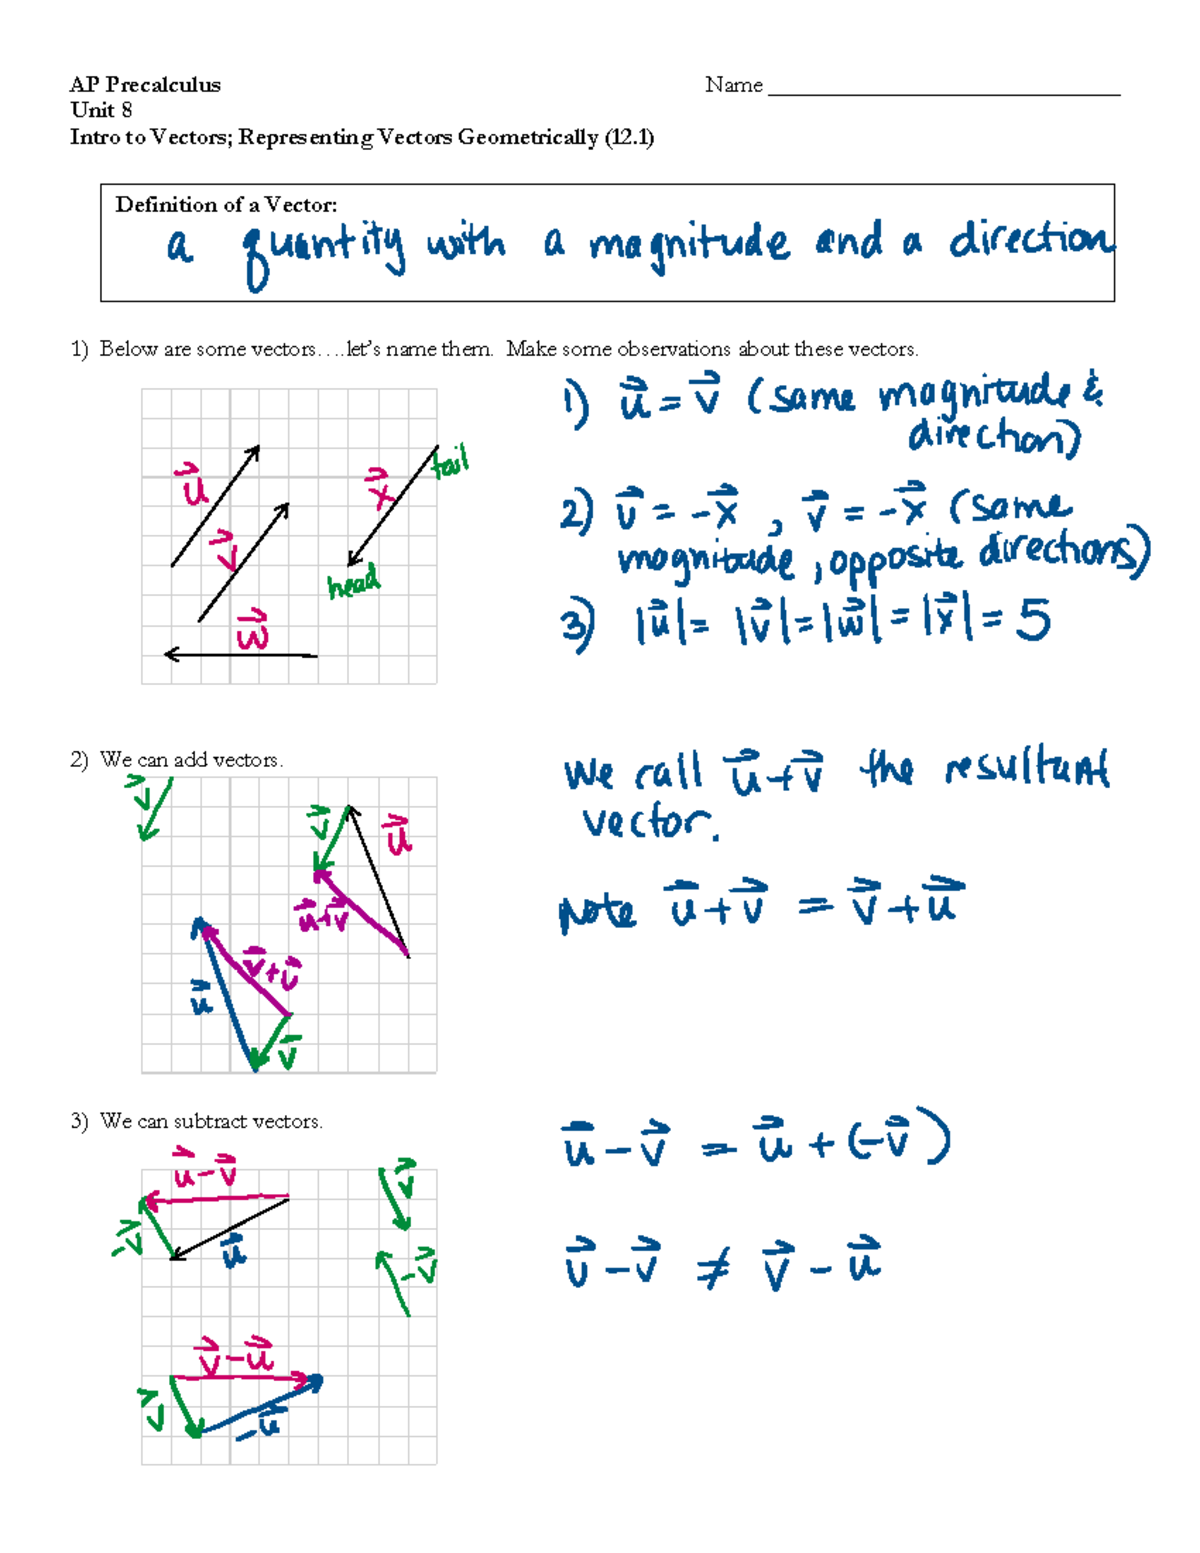 AP Precalculus
Name
Unit 8
Intro to Vectors; Representing Vectors Geometrically (12.1)
Definition of a Vector:
a quantity with a magnitude and a direction
1) Below are some vectors….let's name them. Make some observations about these vectors.
1) u⃗ = v⃗ (same magnitude &
direction)
u⃗
v⃗
x⃗
tail
head
w⃗
2) u⃗ = -x⃗ , v⃗ = -x⃗ (same
magnitude, opposite directions)
3) |u⃗| = |v⃗| = |w⃗| = |x⃗| = 5
2) We can add vectors.
v⃗
v⃗
u⃗
u⃗+v⃗
u⃗
v⃗+u⃗
v⃗
We call u⃗+v⃗ the resultant
vector.
note u⃗+v⃗ = v⃗+u⃗
3) We can subtract vectors.
u⃗-v⃗
-v⃗
u⃗
v⃗
-v⃗
v⃗-u⃗
v⃗
-u⃗
u⃗ - v⃗ = u⃗ + (-v⃗)
u⃗ - v⃗ ≠ v⃗ - u⃗